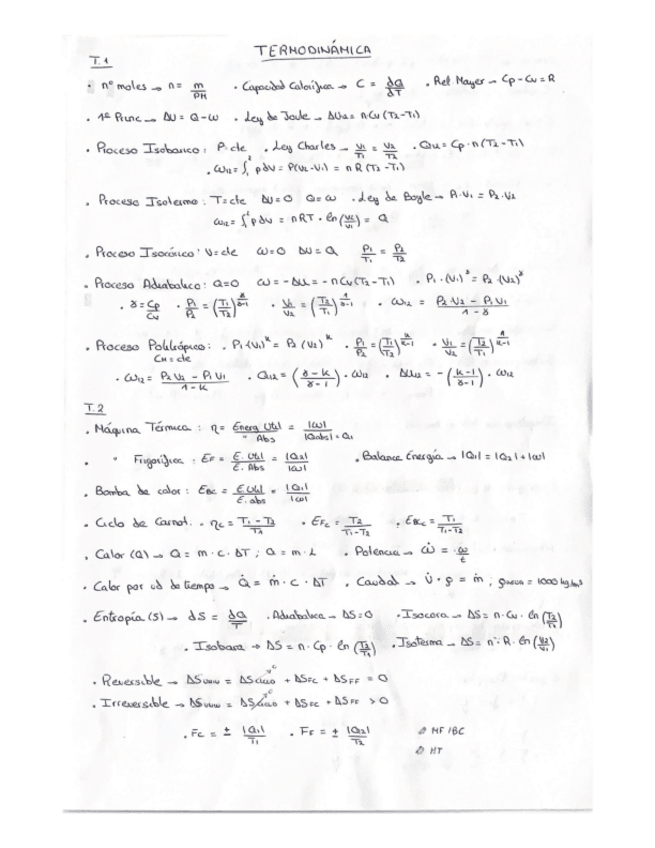 TERMODINÁMICA
T.1
. nº moles → n = m/PM . Capacidad Calorífica → C = dQ/dT . Rel Mayer → Cp - Cv = R
. 1º Princ → ΔU = Q - W . Ley de Joule → ΔU12 = n Cv (T2 - T1)
. Proceso Isobarico : P = cte . Ley Charles → V1/T1 = V2/T2 . Q12 = Cp · n (T2 - T1)
. W12 = ∫₁² p dv = P(V2 - V1) = n R (T2 - T1)
. Proceso Isotermo : T = cte ΔU = 0 Q = W . Ley de Boyle → P1 · V1 = P2 · V2
W12 = ∫₁² p dv = nRT · ln(V2/V1) = Q
. Proceso Isocórico : V = cte W = 0 ΔU = Q P1/T1 = P2/T2
. Proceso Adiabatico : Q = 0 W = -ΔU = -n Cv (T2 - T1) . P1 · (V1)^γ = P2 · (V2)^γ
. γ = Cp/Cv . P1/P2 = (T1/T2)^(γ/γ-1) . V1/V2 = (T2/T1)^(1/γ-1) . W12 = P2 · V2 - P1 V1 / 1 - γ
. Proceso Politrópico : . P1 · (V1)^k = P2 (V2)^k . P1/P2 = (T1/T2)^(k/k-1) . V1/V2 = (T2/T1)^(1/k-1)
= cte
. W12 = P2 V2 - P1 V1 / 1 - k . Q12 = (γ - k / γ - 1) · W12 . ΔU12 = -(k - 1 / γ - 1) · W12
T.2
. Máquina Térmica : η = Energ Util / " Abs = |W| / |Qabs| = Q1
. " Frigorífica : EF = E. Util / E. Abs = |Q2| / |W| . Balance Energía → |Q1| = |Q2| + |W|
. Bomba de calor : EBC = E Util / E. abs = |Q1| / |W|
. Ciclo de Carnot . ηc = T1 - T2 / T1 . EFC = T2 / T1 - T2 . EBCc = T1 / T1 - T2
. Calor (Q) → Q = m · c · ΔT ; Q = m · L . Potencia → Ẇ = W/t
. Calor por ud de tiempo → Q̇ = ṁ · c · ΔT . Caudal → V̇ · ρ = ṁ ; ρAGUA = 1000 kg/m³
. Entropía (S) → dS = dQ/T . Adiabatica → ΔS = 0 . Isocora → ΔS = n · Cv · ln(T2/T1)
. Isobara → ΔS = n · Cp · ln(T2/T1) . Isoterma → ΔS = n · R · ln(V2/V1)
. Reversible → ΔSUNIV = ΔSciclo + ΔSFC + ΔSFF = 0
. Irreversible → ΔSUNIV = ΔSciclo + ΔSFC + ΔSFF > 0
. FC = ± |Q1|/T1 . FF = ± |Q2|/T2
MF/BC
MT